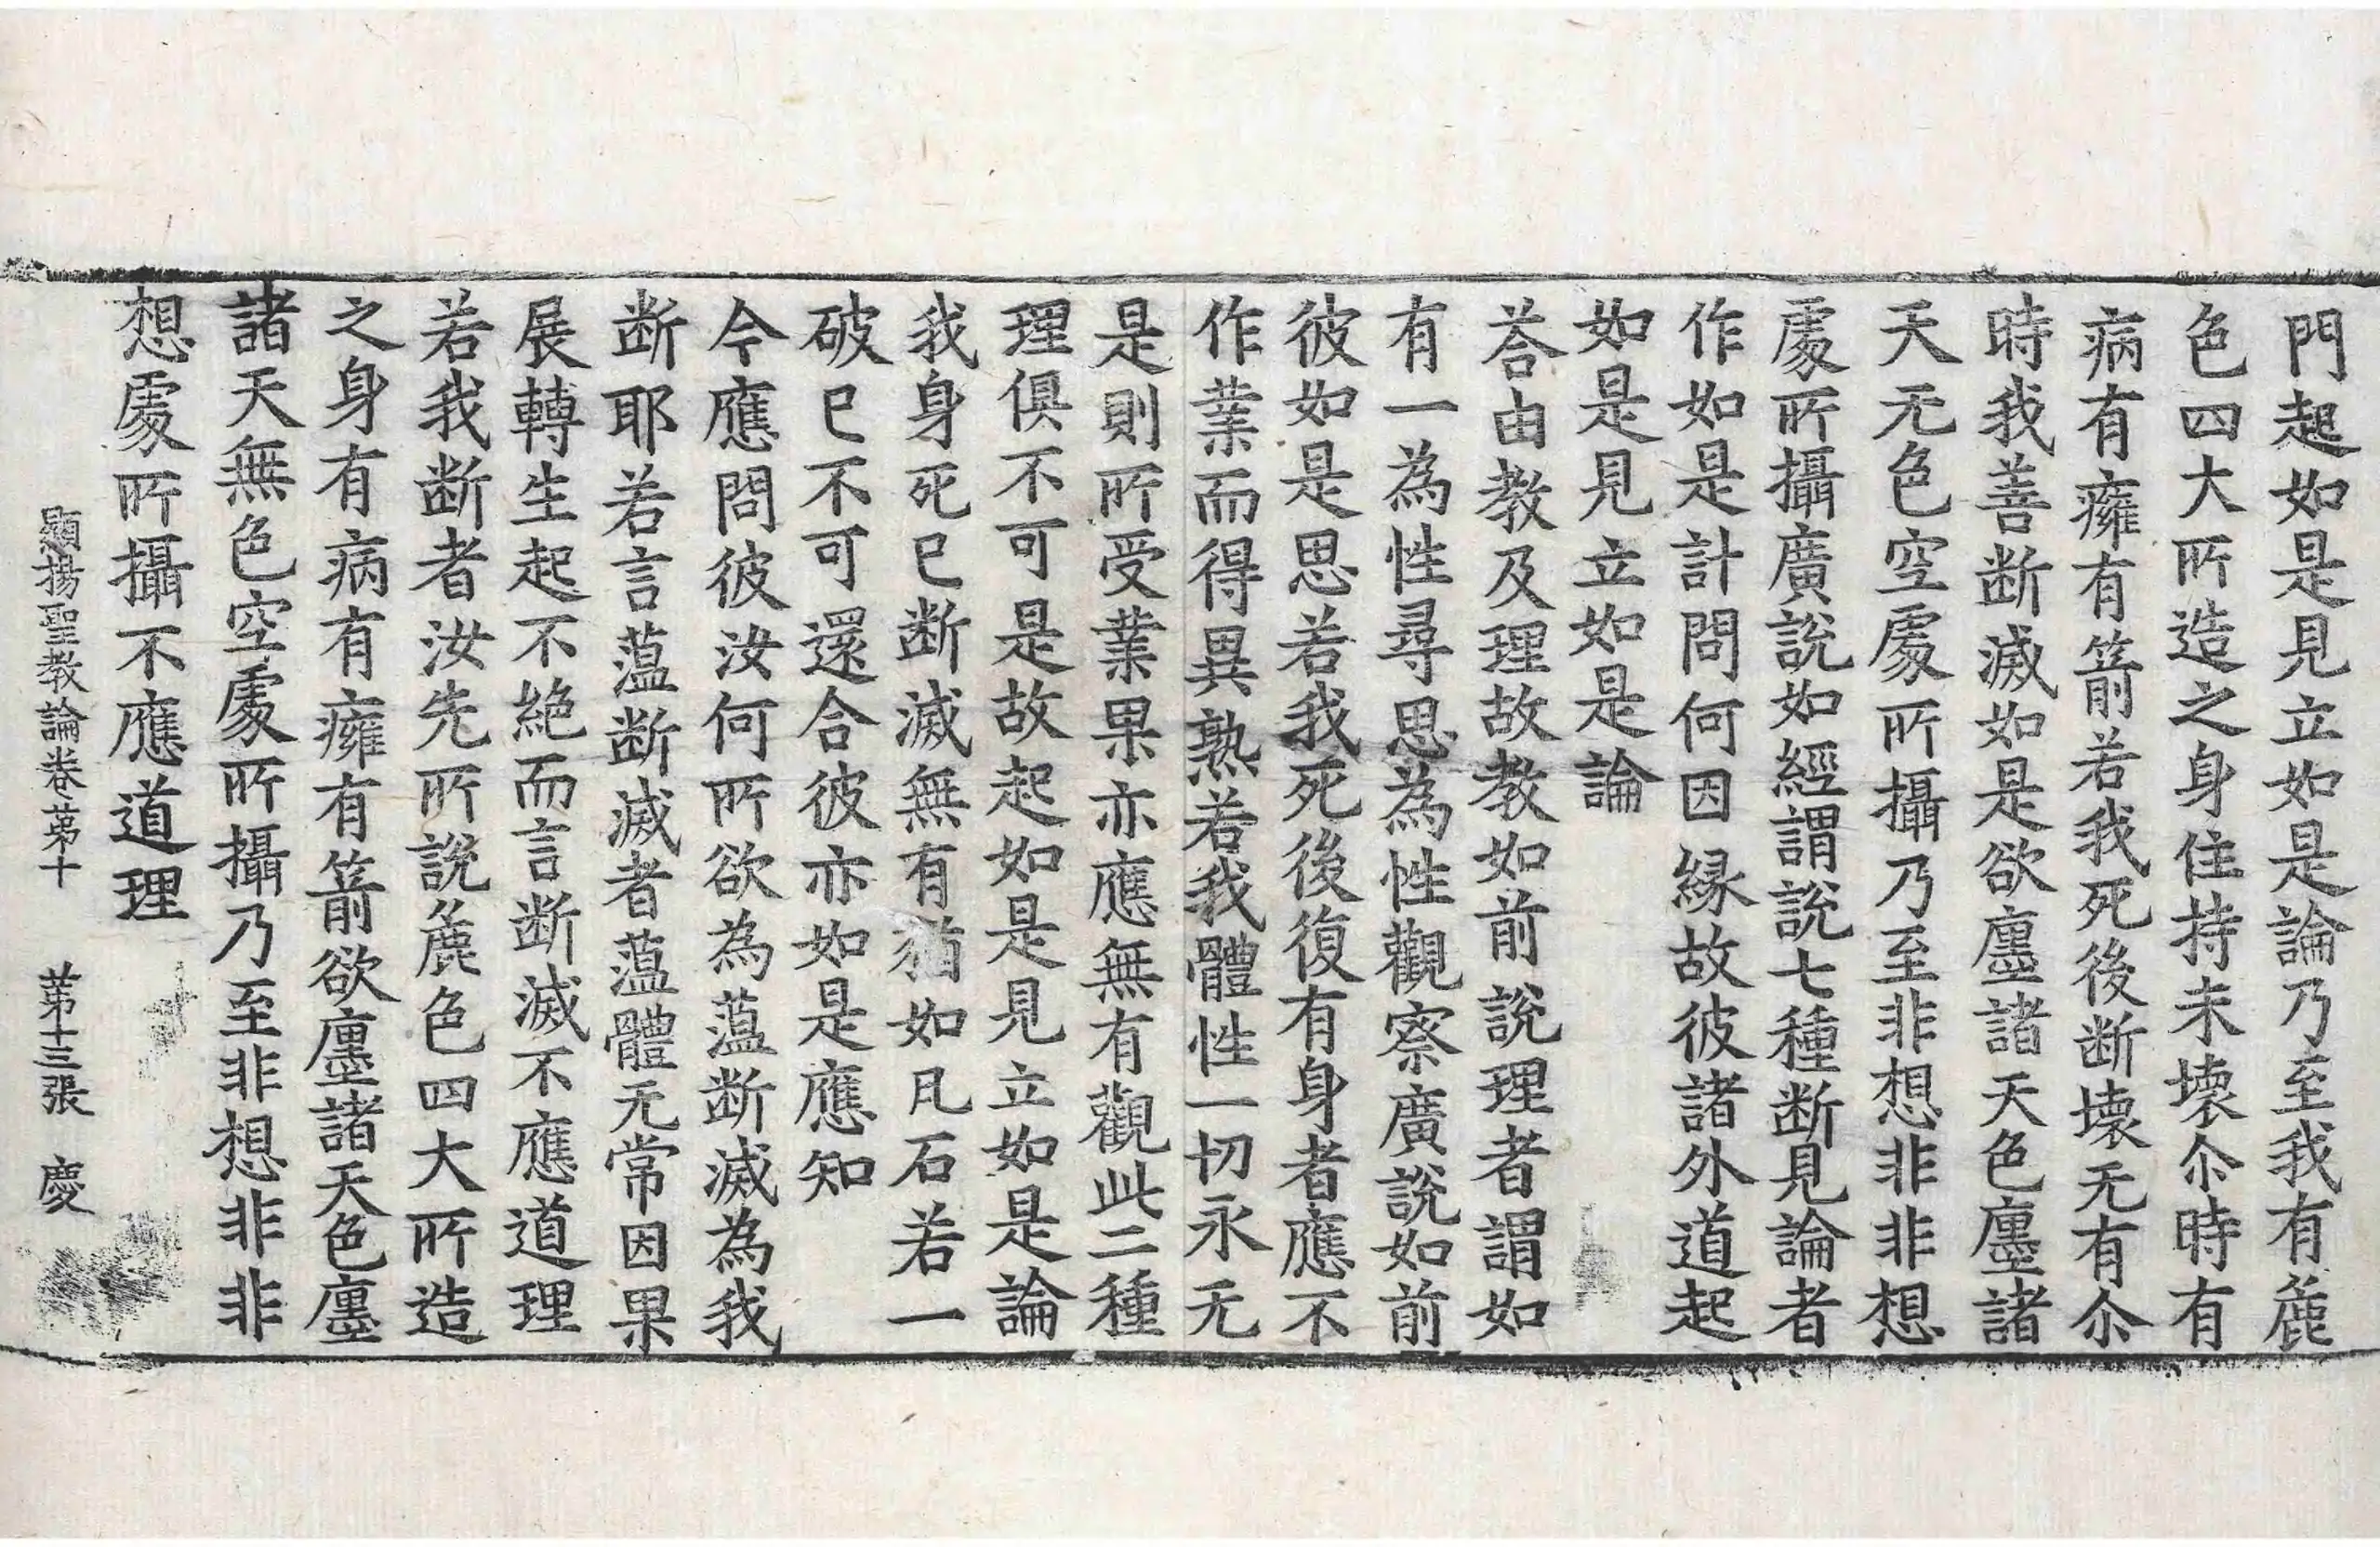 門起如是見立如是論乃至我有麁
色四大所造之身住持未壞尒時有
病有癰有箭若我死後断壞无有尒
時我善断滅如是欲廛諸天色廛諸
天无色空處所攝乃至非想非非想
處所攝廣說如經謂說七種断見論者
作如是計問何因縁故彼諸外道起
如是見立如是論
荅由教及理故教如前說理者謂如
有一為性尋思為性觀察廣說如前
彼如是思若我死後復有身者應不
作業而得異熟若我體性一切永无
是則所受業果亦應無有觀此二種
理俱不可是故起如是見立如是論
我身死已断滅無有猶如凡石若一
破已不可還合彼亦如是應知
今應問彼汝何所欲為薀断滅為我
断耶若言薀断滅者薀體无常因果
展轉生起不絶而言断滅不應道理
若我断者汝先所說麁色四大所造
之身有病有癰有箭欲廛諸天色廛
諸天無色空處所攝乃至非想非非
想處所攝不應道理
顯揚聖教論卷苐十 苐十三張 慶